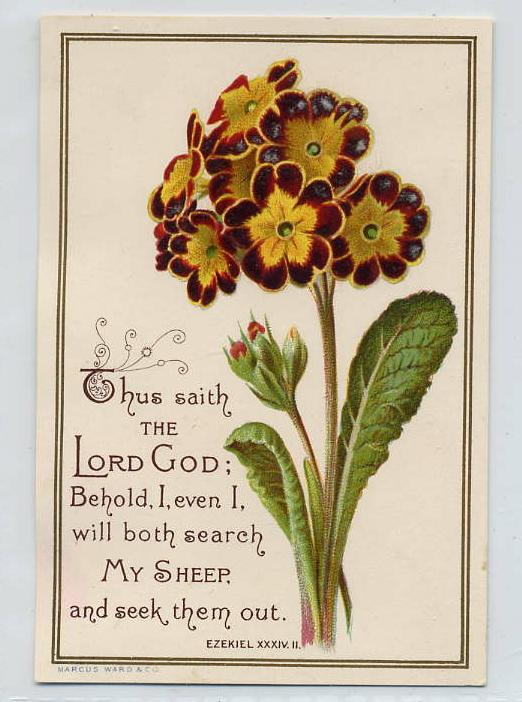 Thus saith
THE
LORD GOD;
Behold, I, even I,
will both search
MY SHEEP,
and seek them out.
EZEKIEL XXXIV. 11.
MARCUS WARD & CO.